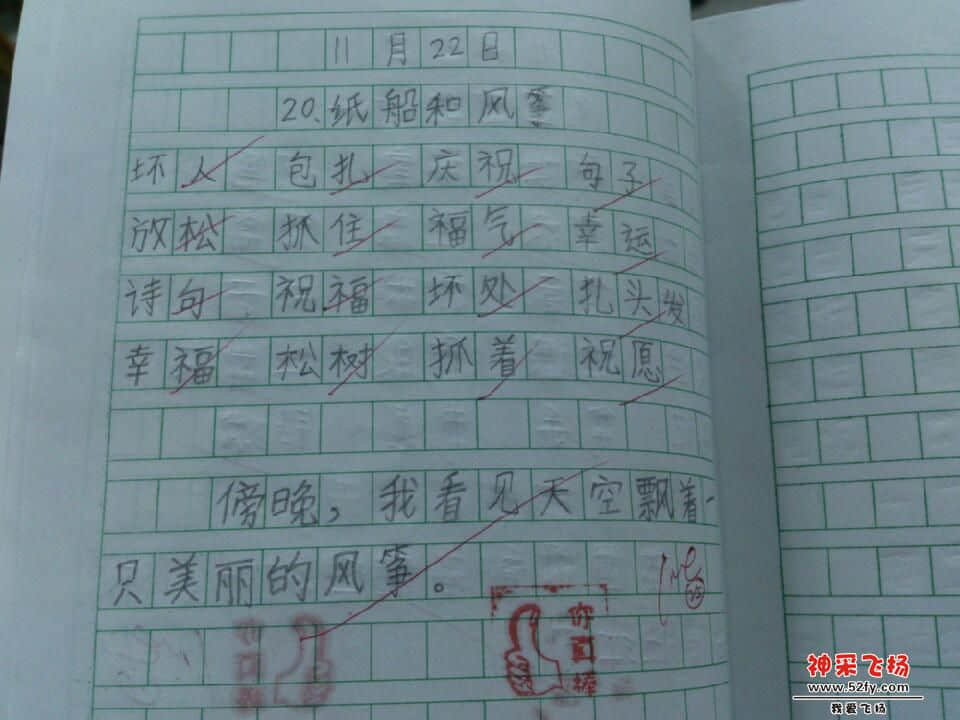 11月22日
20.纸船和风筝
坏人 包扎 庆祝 句子
放松 抓住 福气 幸运
诗句 祝福 坏处 扎头发
幸福 松树 抓着 祝愿
傍晚，我看见天空飘着一
只美丽的风筝。
你真棒
神采飞扬
www.52fy.com
我爱飞扬